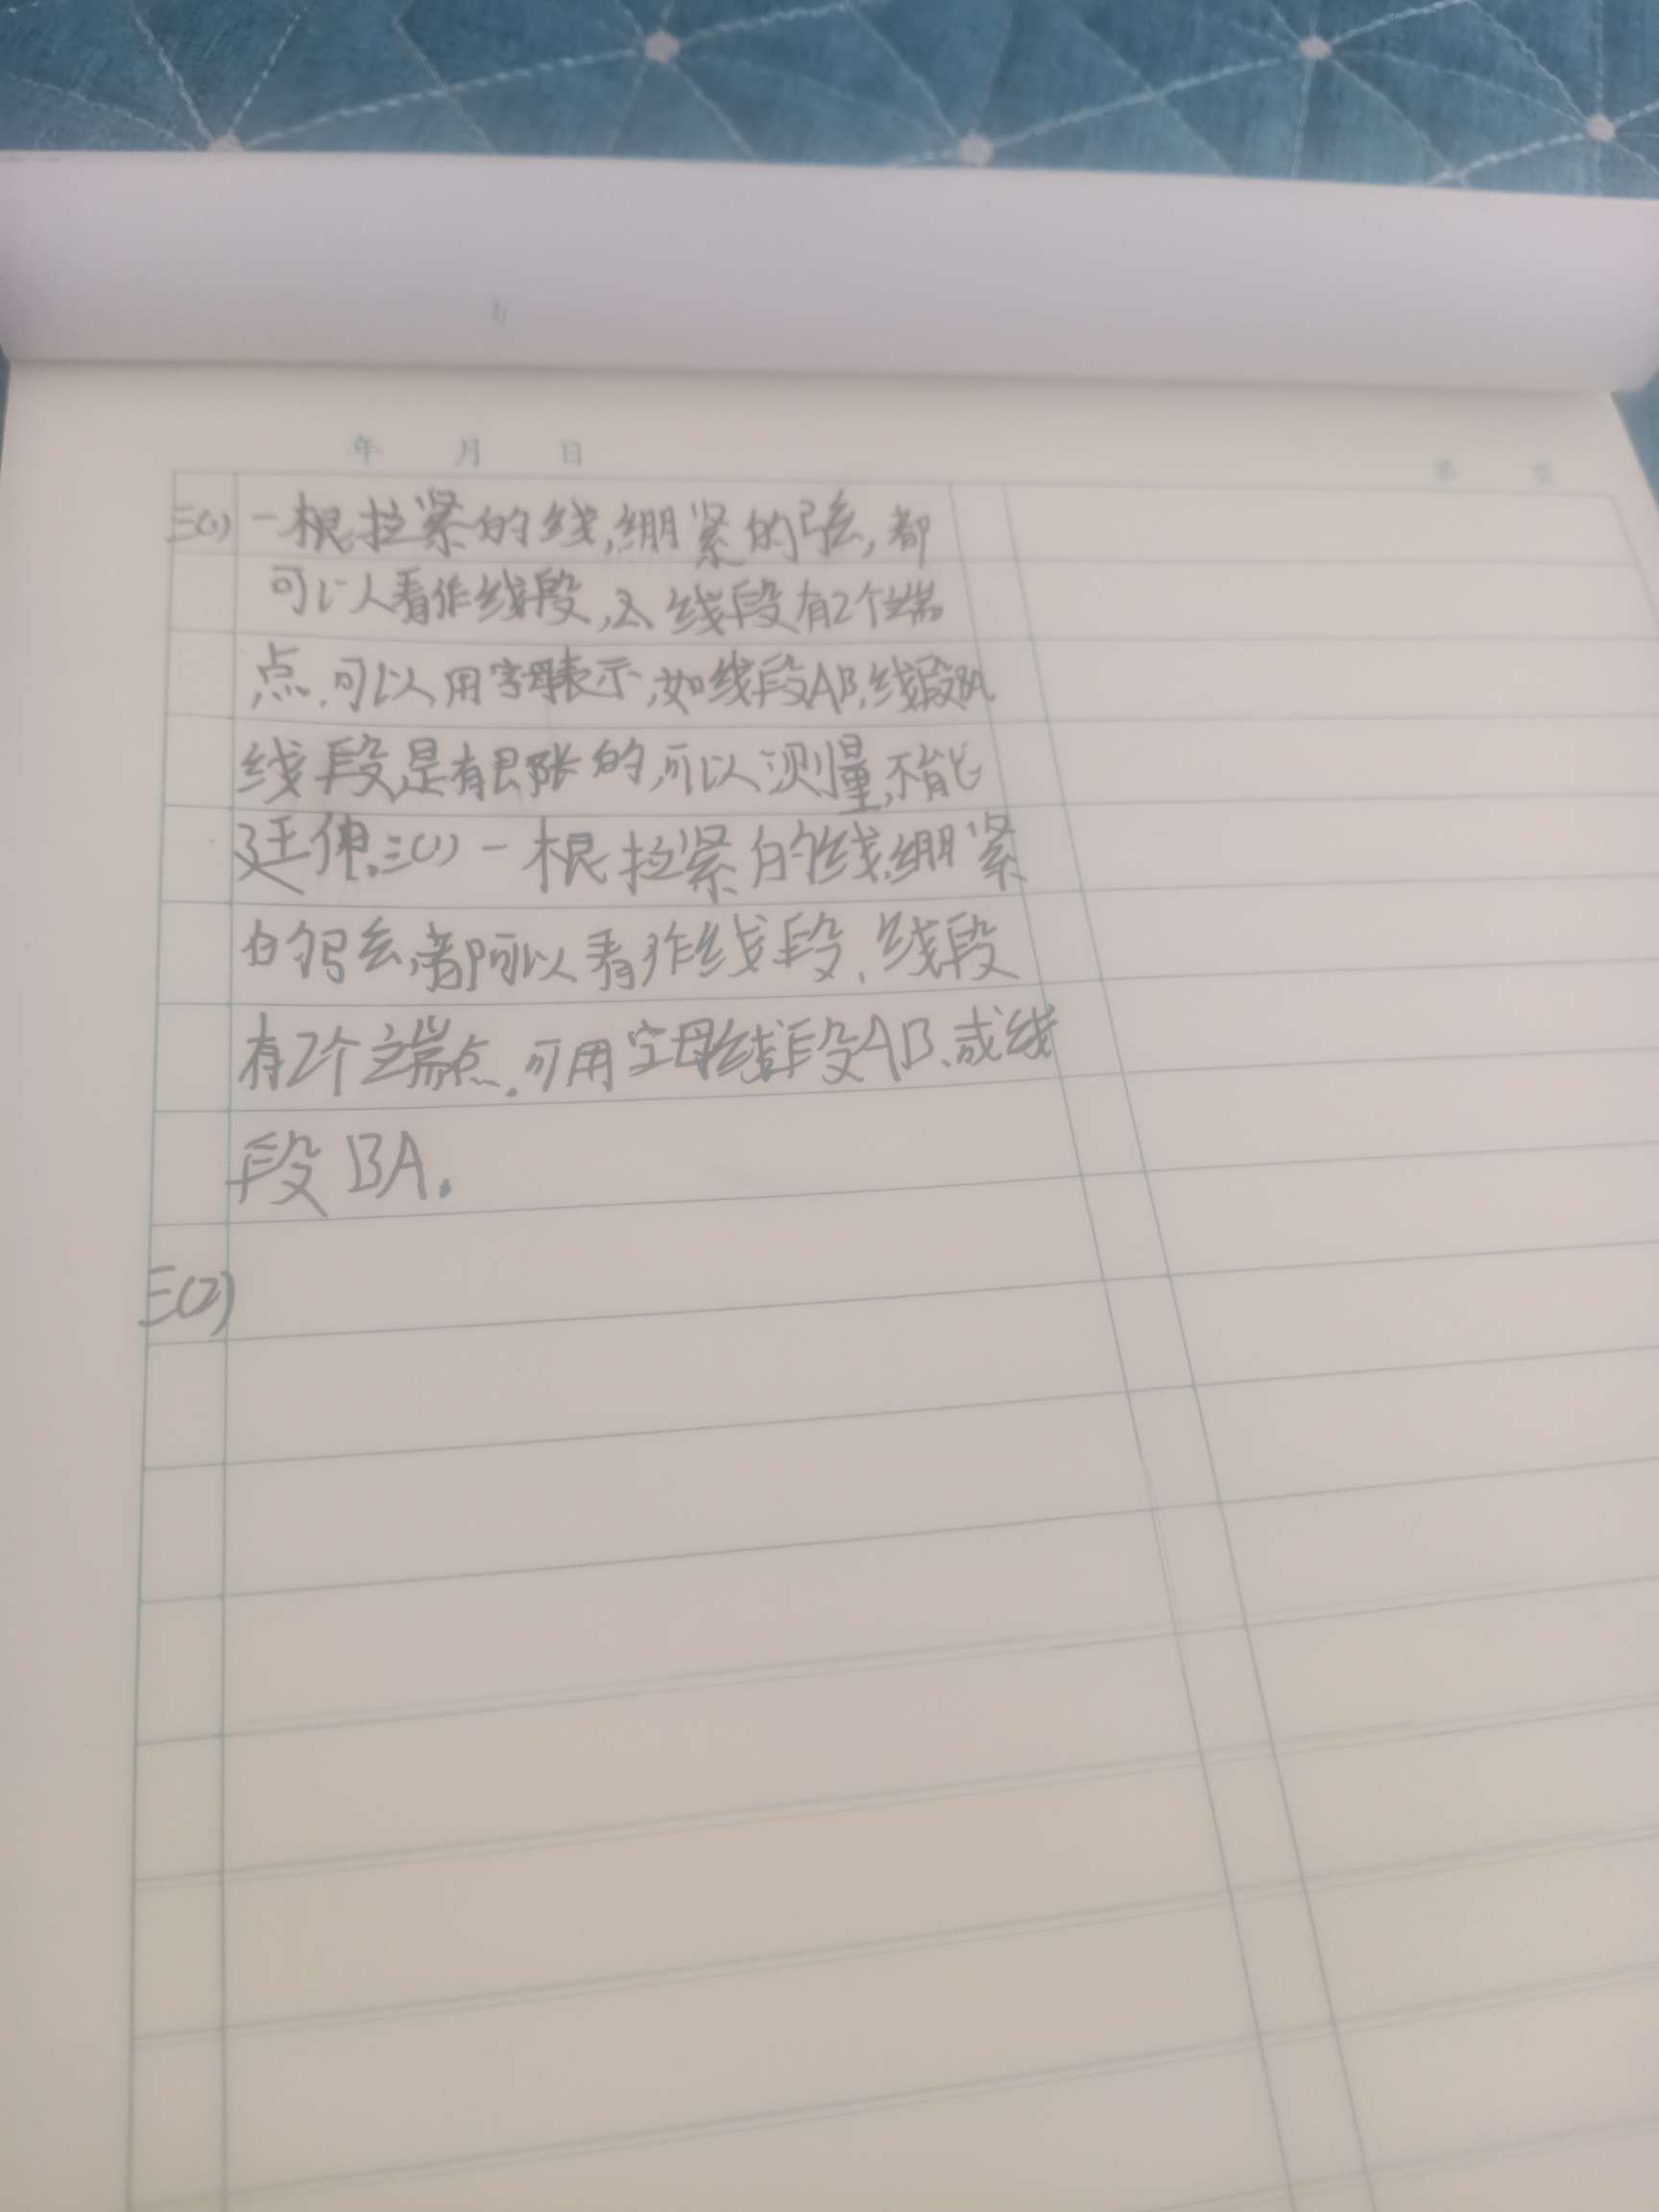 年 月 日
三(1) 一根拉紧的线,绷紧的弦,都
可以看作线段, 线段有2个端
点.可以用字母表示,如线段AB,线段BA
线段是有限长的,可以测量,不能
延伸.三(1)一根拉紧的线,绷紧
的弦,都可以看作线段,线段
有2个端点.可用字母线段AB、或线
段BA.
三(2)